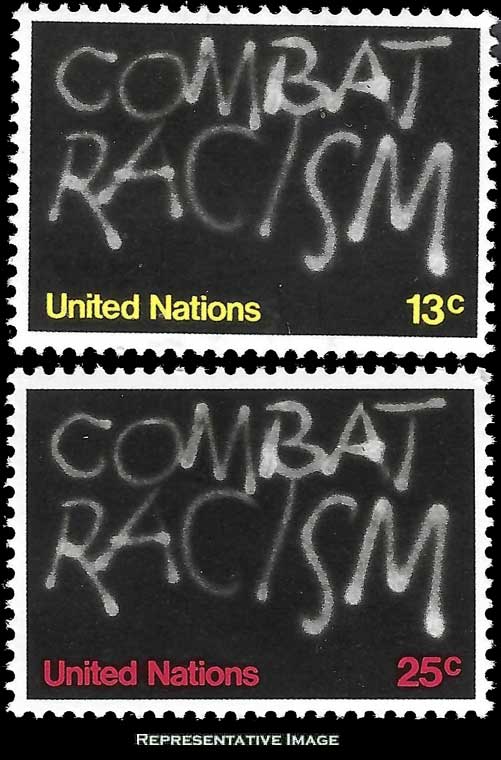 COMBAT
RACISM
United Nations 13c
COMBAT
RACISM
United Nations 25c
REPRESENTATIVE IMAGE